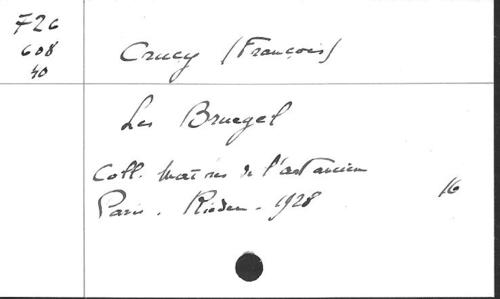 F26
608
40
Crucy (François)
Les Bruegel
Coll. Maîtres de l'art ancien
Paris. Rieder. 1928
16